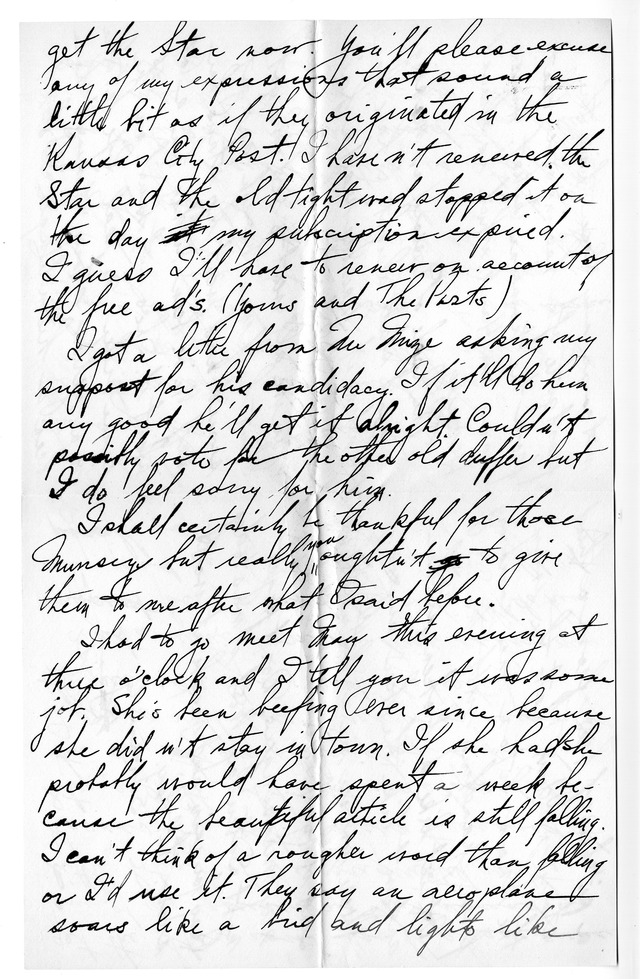 get the Star now. You'll please excuse
any of my expressions that sound a
little bit as if they originated in the
Kansas City Post. I haven't renewed the
Star and the old tightwad stopped it on
the day it my subscription expired.
I guess I'll have to renew on account of
the free ads. (Yours and The Posts)
I got a letter from Mr Mize asking my
support for his candidacy. If it'll do him
any good he'll get it alright Couldn't
possibly vote for the other old duffer but
I do feel sorry for him.
I shall certainly be thankful for those
Munseys but really you oughtn't to give
them to me after what I said before.
I had to go meet Mary this evening at
three o'clock and I tell you it was some
job. She's been beefing ever since because
she didn't stay in town. If she had she
probably would have spent a week be-
cause the beautiful article is still falling.
I can't think of a rougher word than falling
or I'd use it. They say an aeroplane
soars like a bird and lights like